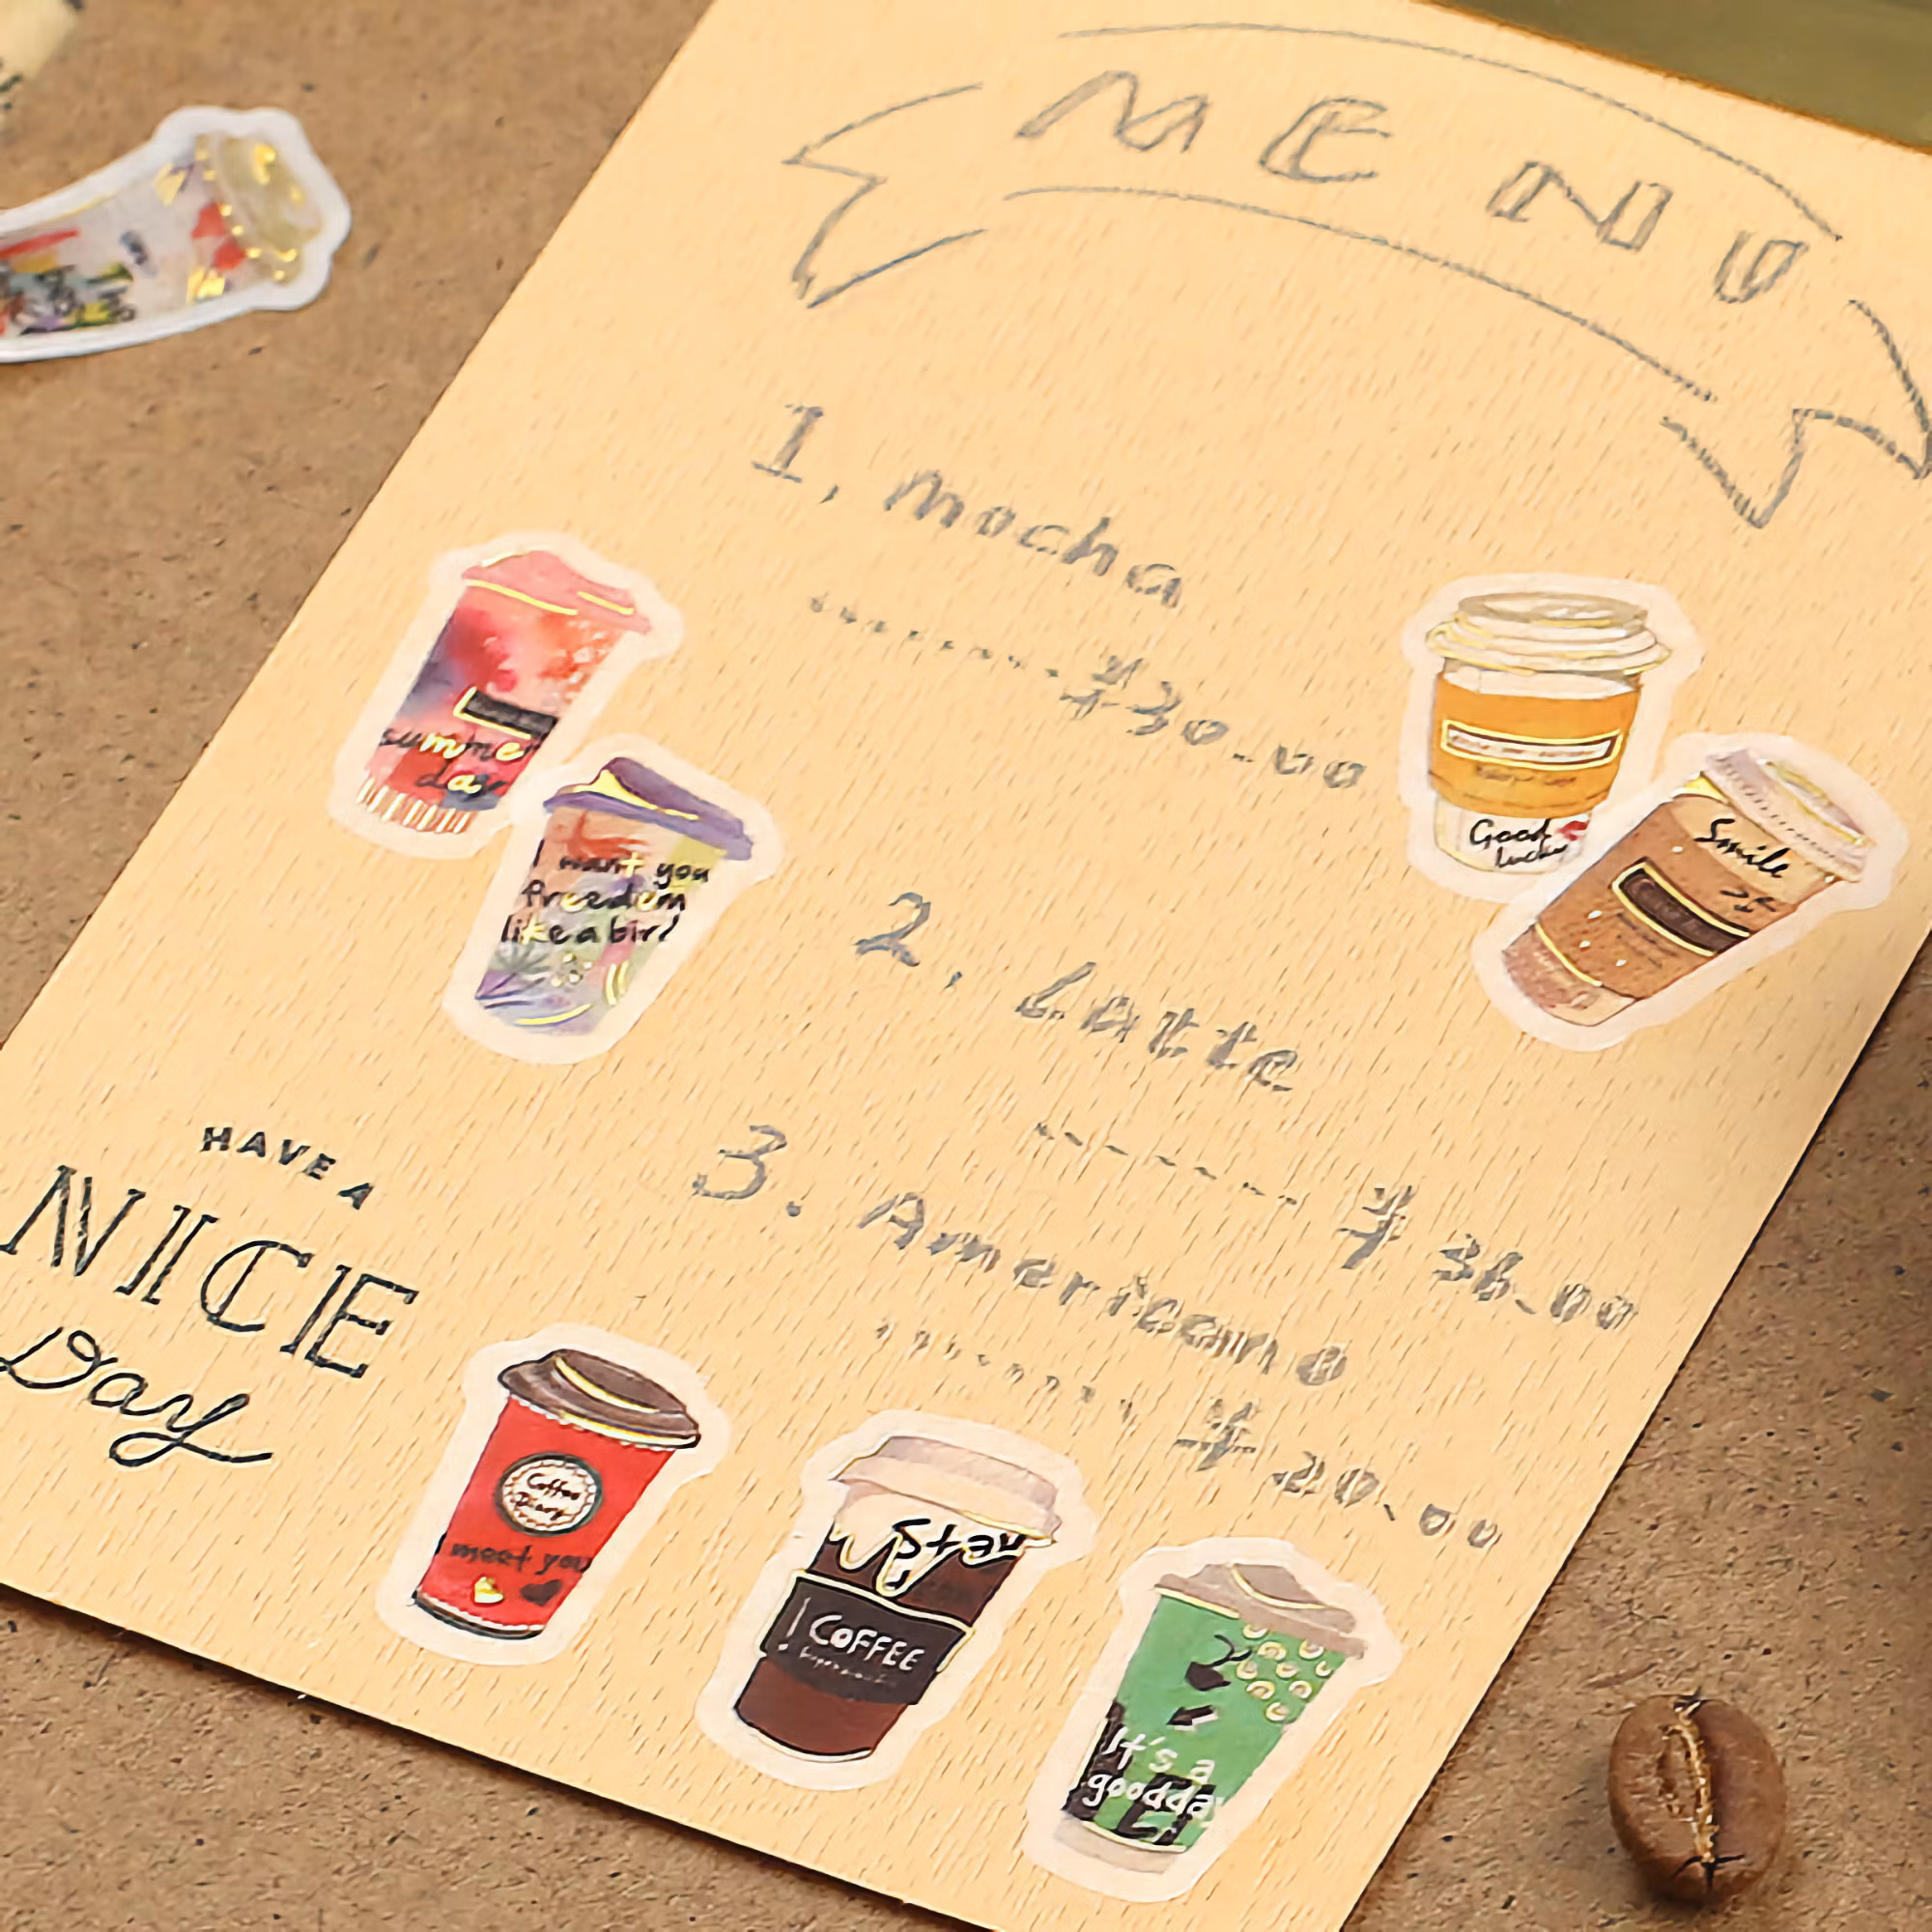 MENU
1. mocha
--------¥30.00
2. Latte
-------¥36.00
3. Americano
--------¥20.00
HAVE A
NICE
Day
summer
day
I want you
freedom
like a bird
Good
lucky
Smile
Coffee
Diary
meet you
COFFEE
It's a
goodday